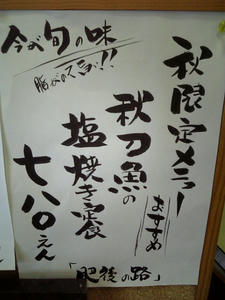 秋限定メニュー
おすすめ
秋刀魚の
塩焼き定食
七八〇えん
今が旬の味
「肥後の路」